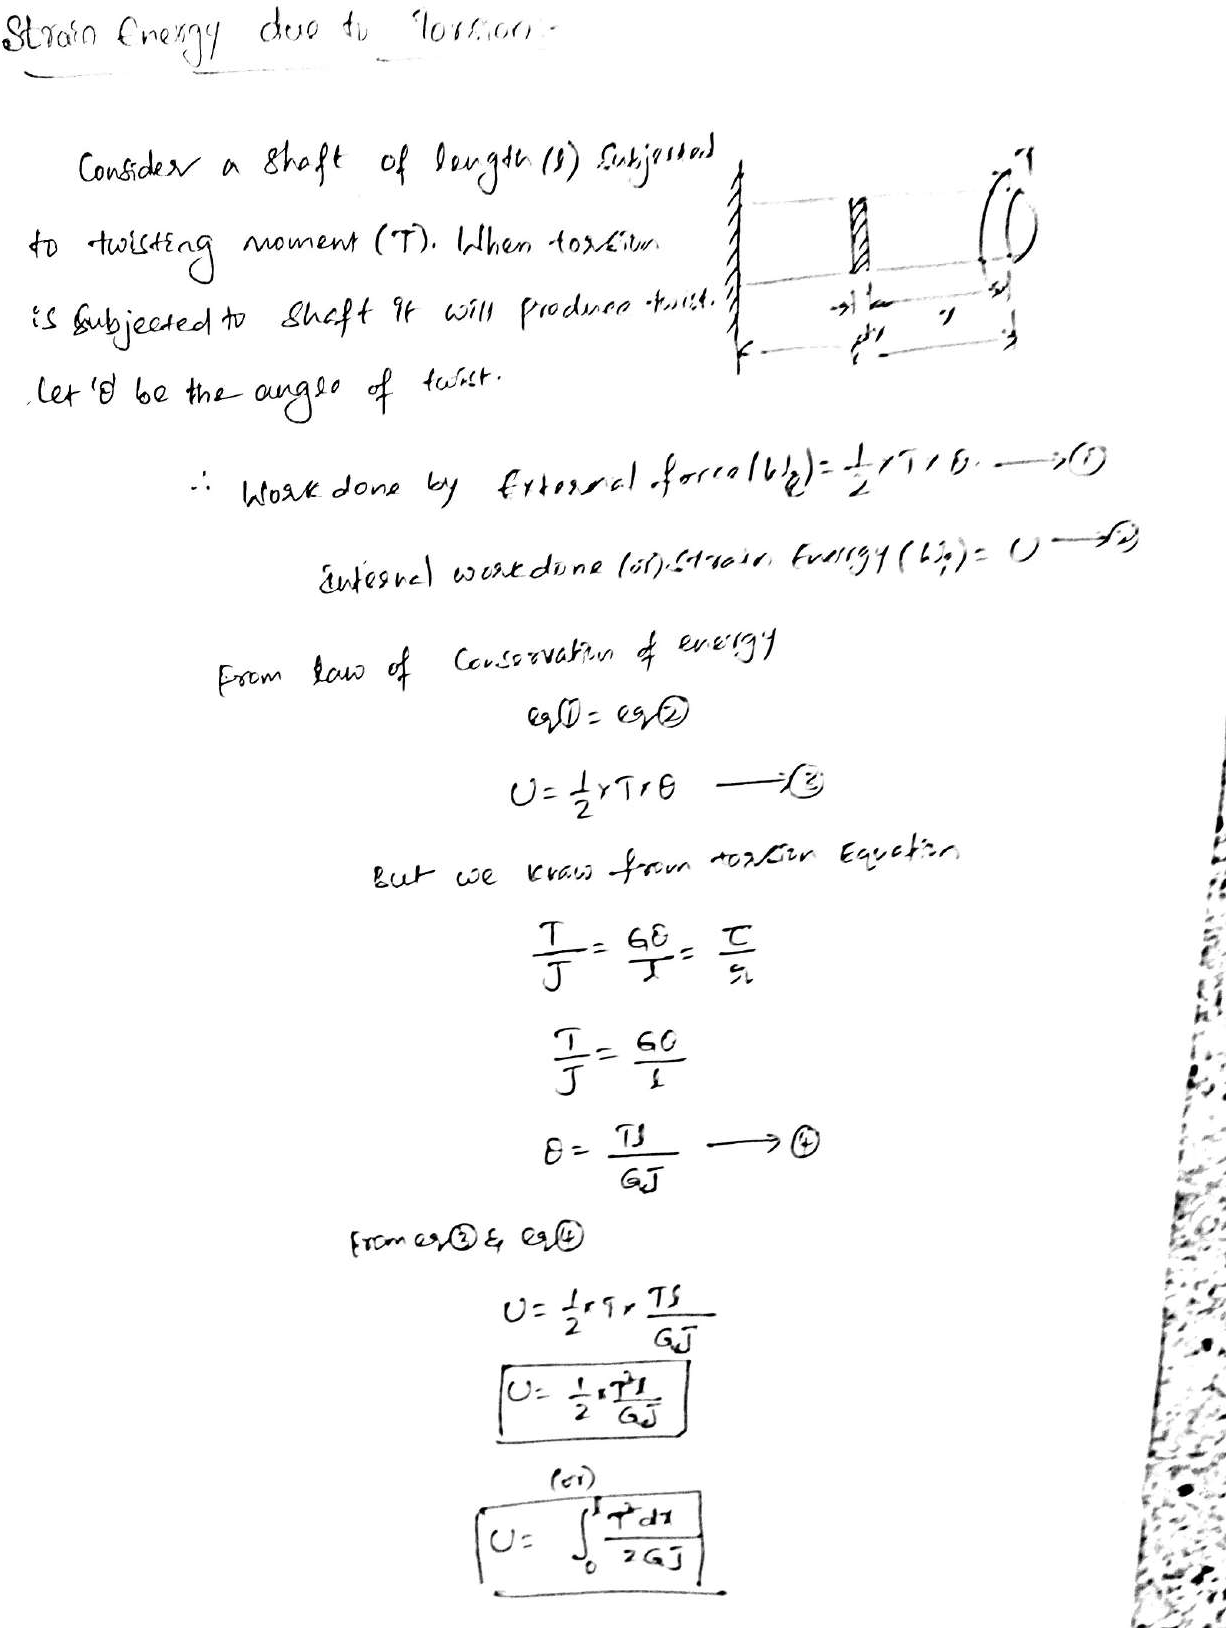 Strain Energy due to Torsion:-
Consider a shaft of length (l) subjected
to twisting moment (T). When torsion
is subjected to shaft it will produce twist.
Let 'θ' be the angle of twist.
T
dx
x
l
∴ Work done by External force (We) = 1/2 × T × θ. → ①
Internal workdone (or) strain Energy (Wi) = U → ②
From law of Conservation of energy
eq① = eq②
U = 1/2 × T × θ → ③
But we know from torsion Equation
T/J = Gθ/l = τ/r
T/J = Gθ/l
θ = Tl/GJ → ④
From eq③ & eq④
U = 1/2 × T × Tl/GJ
U = 1/2 × T²l/GJ
(or)
U = ∫₀ˡ T²dx/2GJ